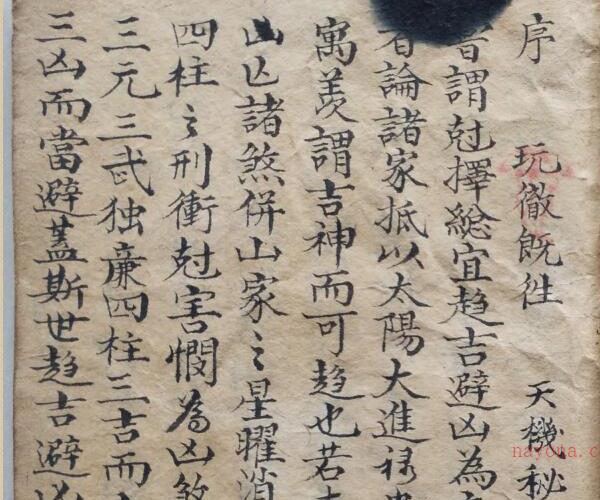 序 玩徹既徃 天機秘
謂尅擇総宜趍吉避凶為
論諸家抵以太陽大進禄
寓羡謂吉神而可趍也若
山亾諸煞併山家之星曜消
四柱之刑衝尅害憫為凶煞
三元三武独廉四柱三吉而
三凶而當避蓋斯世趍吉避凶
nayona.c